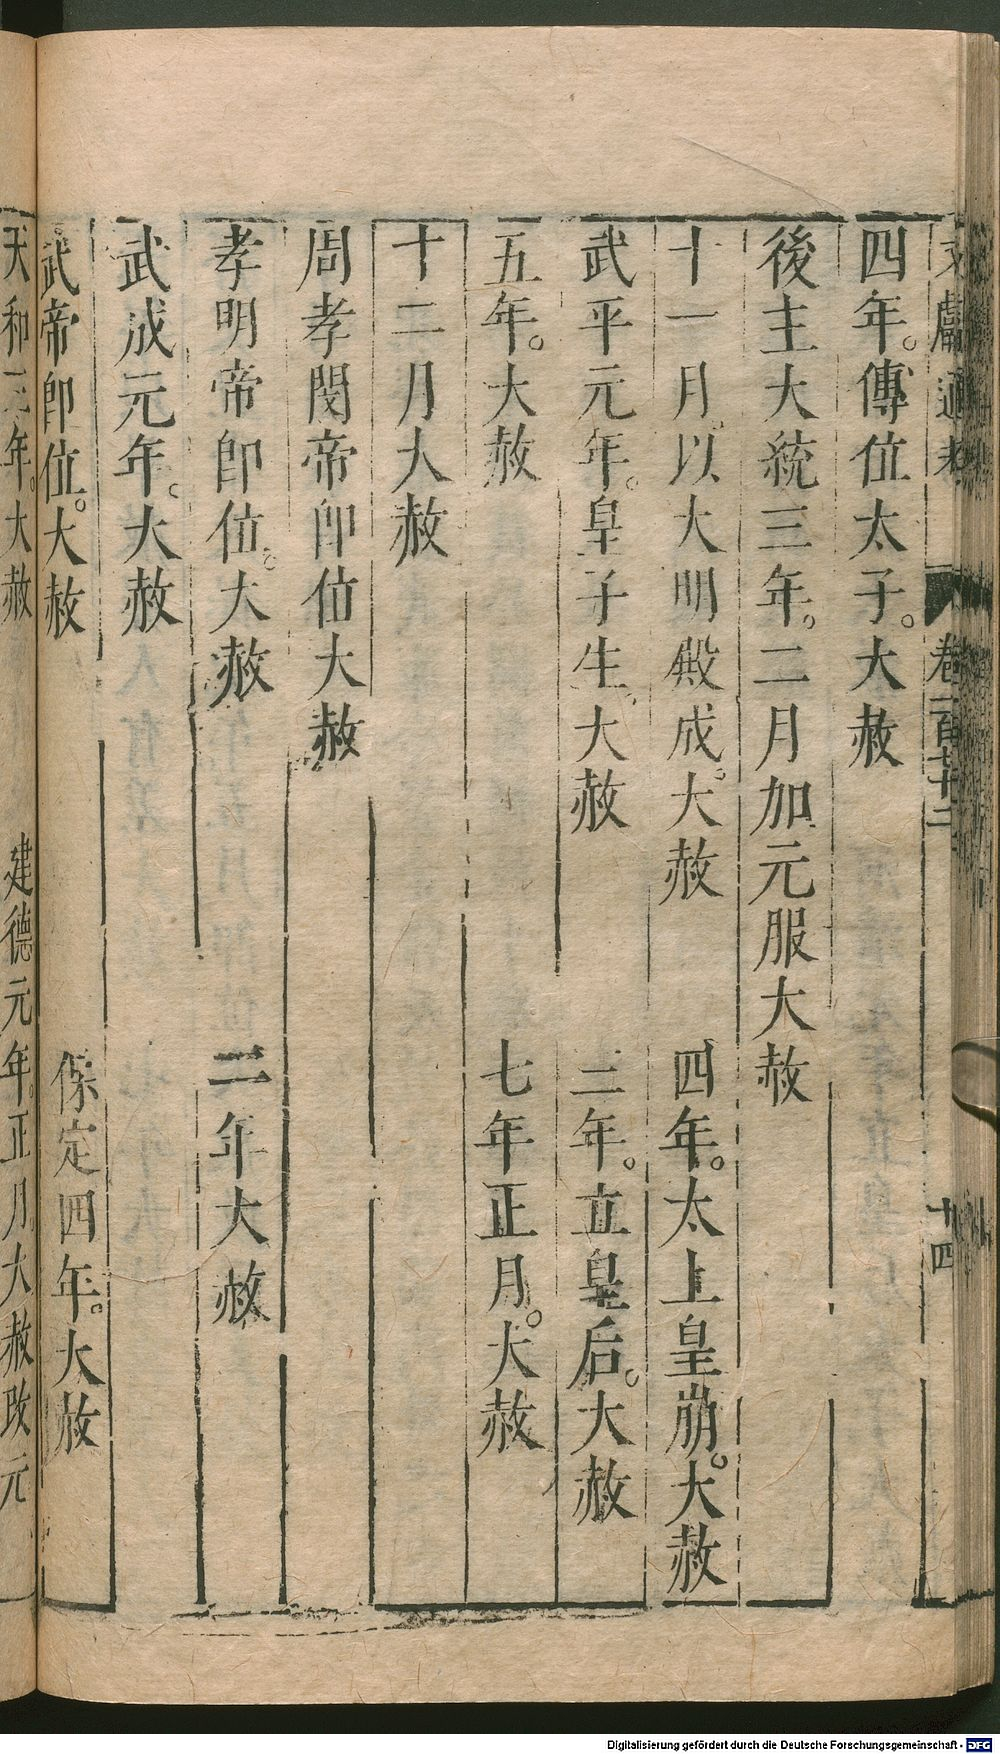 文獻通考 卷一百七十二 十四
四年。傳位太子。大赦
後主大統三年。二月加元服大赦
十一月。以大明殿成。大赦 四年。太上皇崩。大赦
武平元年。皇子生。大赦 二年。立皇后。大赦
五年。大赦 七年正月。大赦
十二月大赦
周孝閔帝即位大赦
孝明帝即位。大赦 二年大赦
武成元年。大赦
武帝即位。大赦 保定四年。大赦
天和三年。大赦 建德元年。正月大赦改元
Digitalisierung gefördert durch die Deutsche Forschungsgemeinschaft - DFG